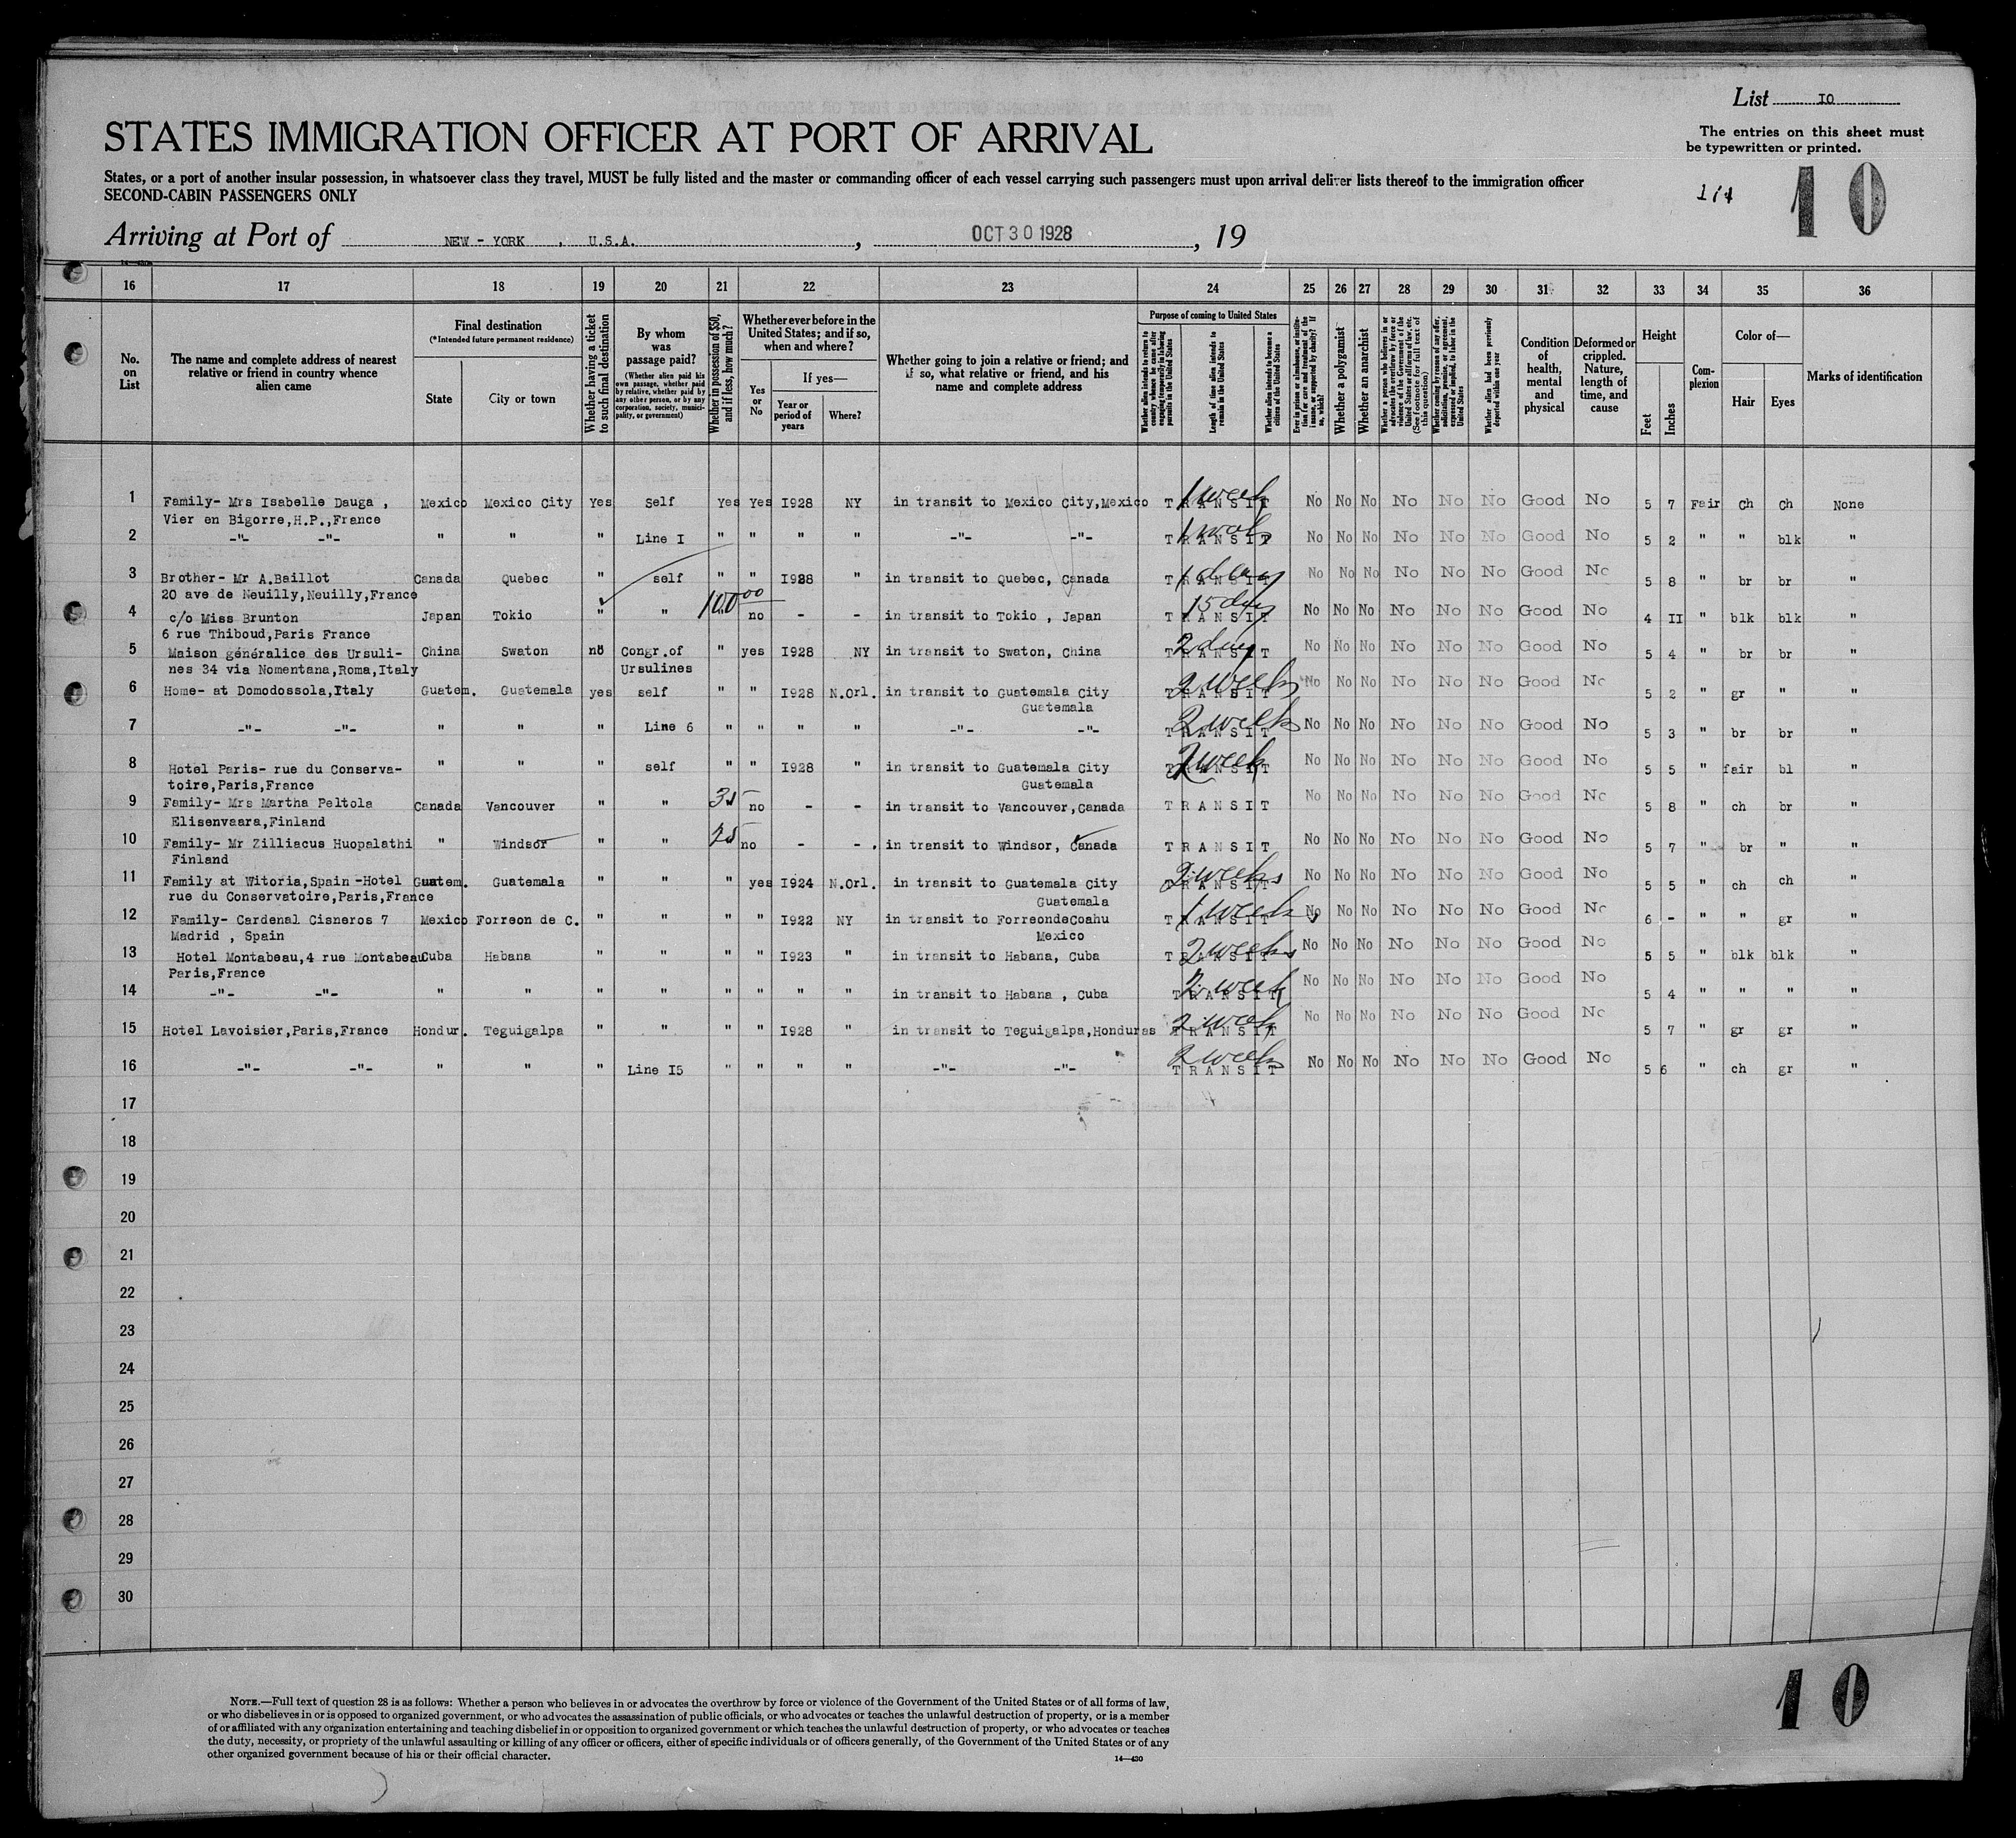 List IO
The entries on this sheet must
be typewritten or printed.
STATES IMMIGRATION OFFICER AT PORT OF ARRIVAL
States, or a port of another insular possession, in whatsoever class they travel, MUST be fully listed and the master or commanding officer of each vessel carrying such passengers must upon arrival deliver lists thereof to the immigration officer
SECOND-CABIN PASSENGERS ONLY
10
Arriving at Port of NEW - YORK , U.S.A. , OCT 30 1928 , 19
16 17 18 19 20 21 22 23 24 25 26 27 28 29 30 31 32 33 34 35 36
No. on List
The name and complete address of nearest relative or friend in country whence alien came
Final destination
(*Intended future permanent residence)
State
City or town
Whether having a ticket to such final destination
By whom was passage paid?
(Whether alien paid his own passage, whether paid by relative, whether paid by any other person, or by any corporation, society, municipality, or government)
Whether in possession of $50, and if less, how much?
Whether ever before in the United States; and if so, when and where?
Yes or No
If yes—
Year or period of years
Where?
Whether going to join a relative or friend; and if so, what relative or friend, and his name and complete address
Purpose of coming to United States
Whether alien intends to return to country whence he came after engaging temporarily in laboring pursuits in the United States
Length of time alien intends to remain in the United States
Whether alien intends to become a citizen of the United States
Ever in prison or almshouse, or institution for care and treatment of the insane, or supported by charity? If so, which?
Whether a polygamist
Whether an anarchist
Whether a person who believes in or advocates the overthrow by force or violence of the Government of the United States or all forms of law, etc. (See footnote for full text of this question)
Whether coming by reason of any offer, solicitation, promise, or agreement, expressed or implied, to labor in the United States
Whether alien had been previously deported within one year
Condition of health, mental and physical
Deformed or crippled. Nature, length of time, and cause
Height
Feet
Inches
Complexion
Color of—
Hair
Eyes
Marks of identification
1 Family- Mrs Isabelle Dauga , Mexico Mexico City Yes Self Yes Yes I928 NY in transit to Mexico City,Mexico TRANSIT 1 week No No No No No No Good No 5 7 Fair Ch Ch None
Vier en Bigorre,H.P.,France
2 -"- -"- " " " Line I " " " " -"- -"- TRANSIT 1 week No No No No No No Good No 5 2 " " blk "
3 Brother- Mr A.Baillot Canada Quebec " self " " I928 " in transit to Quebec, Canada TRANSIT 1 day No No No No No No Good No 5 8 " br br "
20 ave de Neuilly,Neuilly,France
4 c/o Miss Brunton Japan Tokio " " 100.00 no - - in transit to Tokio , Japan TRANSIT 15 day No No No No No No Good No 4 II " blk blk "
6 rue Thiboud,Paris France
5 Maison généralice des Ursuli- China Swaton no Congr.of " yes I928 NY in transit to Swaton, China TRANSIT 2 day No No No No No No Good No 5 4 " br br "
nes 34 via Nomentana,Roma,Italy Ursulines
6 Home- at Domodossola,Italy Guatem. Guatemala yes self " " I928 N.Orl. in transit to Guatemala City TRANSIT 2 weeks No No No No No No Good No 5 2 " gr " "
Guatemala
7 -"- -"- " " " Line 6 " " " " -"- -"- TRANSIT 2 weeks No No No No No No Good No 5 3 " br br "
8 Hotel Paris- rue du Conserva- " " " self " " I928 " in transit to Guatemala City TRANSIT 2 week No No No No No No Good No 5 5 " fair bl "
toire,Paris,France Guatemala
9 Family- Mrs Martha Peltola Canada Vancouver " " 35 no - - in transit to Vancouver,Canada TRANSIT No No No No No No Good No 5 8 " ch br "
Elisenvaara,Finland
10 Family- Mr Zilliacus Huopalathi " Windsor " " 25 no - - . in transit to Windsor, Canada TRANSIT No No No No No No Good No 5 7 " br " "
Finland
11 Family at Witoria,Spain -Hotel Guatem. Guatemala " " " yes I924 N.Orl. in transit to Guatemala City TRANSIT 2 weeks No No No No No No Good No 5 5 " ch ch "
rue du Conservatoire,Paris,France Guatemala
12 Family- Cardenal Cisneros 7 Mexico Forreon de C. " " " " I922 NY in transit to ForreondeCoahu TRANSIT 1 week No No No No No No Good No 6 - " " gr "
Madrid , Spain Mexico
13 Hotel Montabeau,4 rue Montabeau Cuba Habana " " " " I923 " in transit to Habana, Cuba TRANSIT 2 weeks No No No No No No Good No 5 5 " blk blk "
Paris,France
14 -"- -"- " " " " " " " " in transit to Habana , Cuba TRANSIT 2 week No No No No No No Good No 5 4 " " " "
15 Hotel Lavoisier,Paris,France Hondur. Teguigalpa " " " " I928 " in transit to Teguigalpa,Honduras TRANSIT 2 week No No No No No No Good No 5 7 " gr gr "
16 -"- -"- " " " Line I5 " " " " -"- -"- TRANSIT 2 week No No No No No No Good No 5 6 " ch gr "
17
18
19
20
21
22
23
24
25
26
27
28
29
30
NOTE.—Full text of question 28 is as follows: Whether a person who believes in or advocates the overthrow by force or violence of the Government of the United States or of all forms of law,
or who disbelieves in or is opposed to organized government, or who advocates the assassination of public officials, or who advocates or teaches the unlawful destruction of property, or is a member
of or affiliated with any organization entertaining and teaching disbelief in or opposition to organized government or which teaches the unlawful destruction of property, or who advocates or teaches
the duty, necessity, or propriety of the unlawful assaulting or killing of any officer or officers, either of specific individuals or of officers generally, of the Government of the United States or of any
other organized government because of his or their official character.
14—430
10